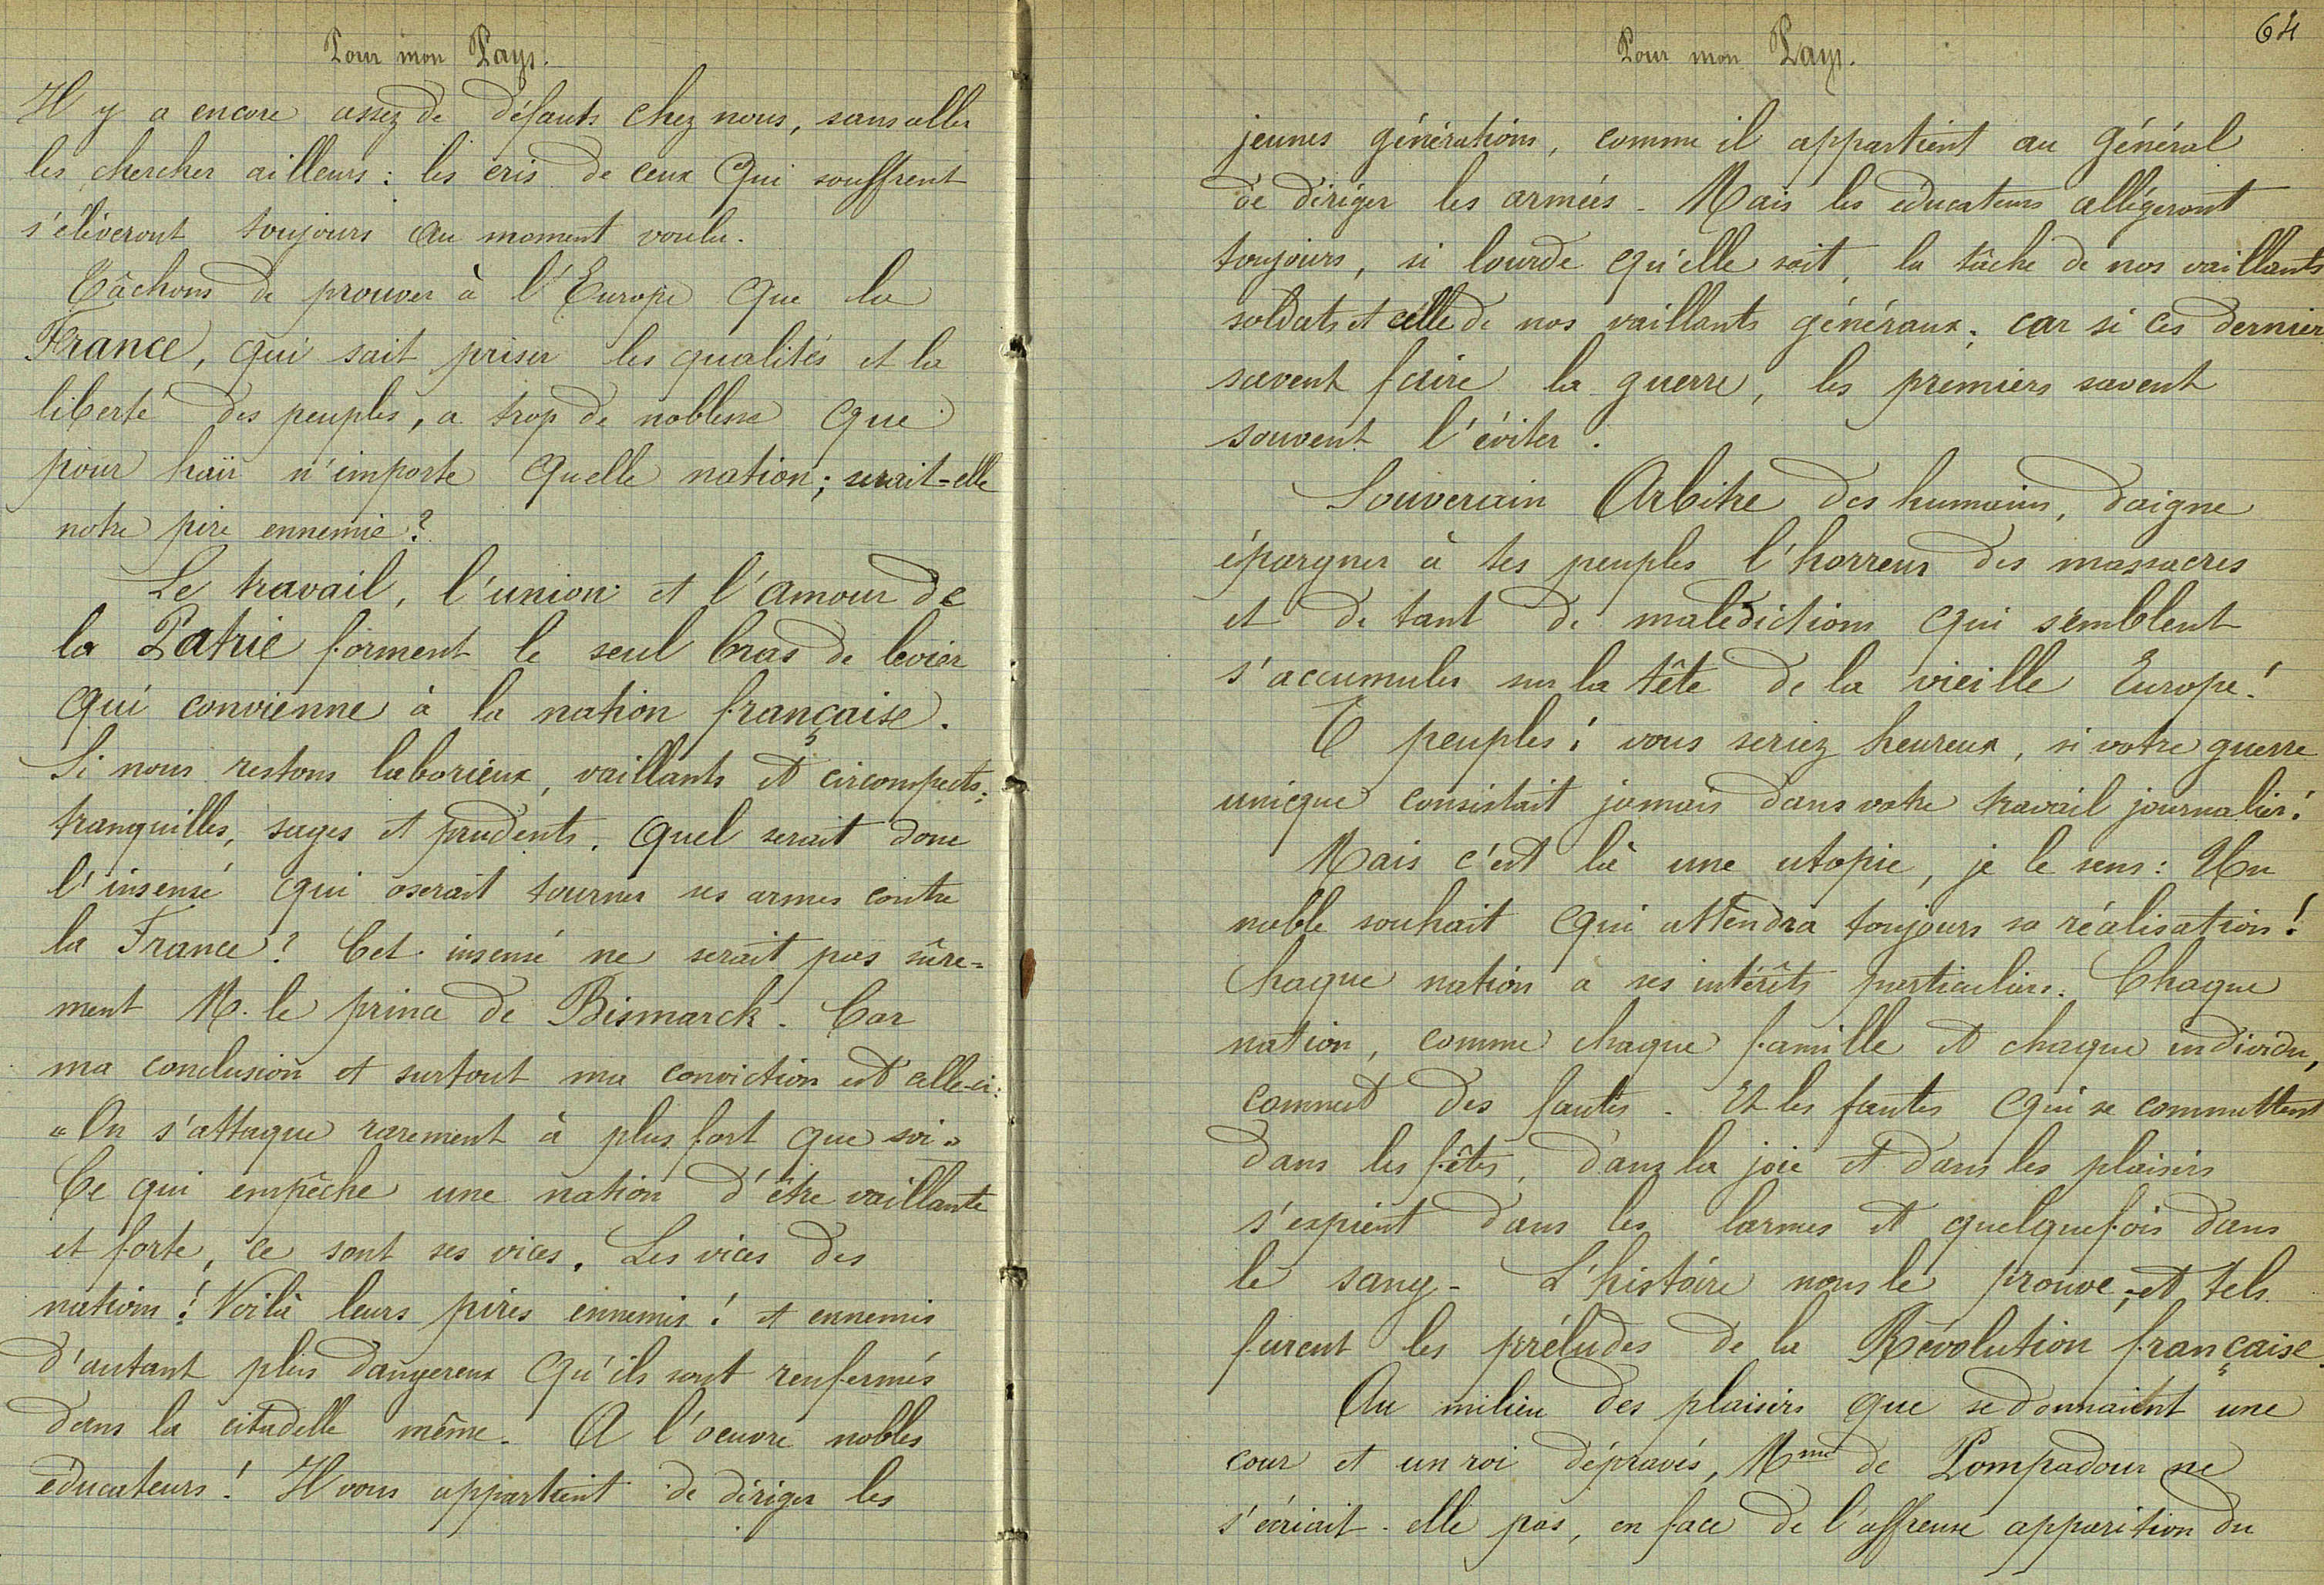 Pour mon Pays.
Il y a encore assez de défauts chez nous, sans aller
les chercher ailleurs : les cris de ceux qui souffrent
s'élèveront toujours au moment voulu.
Tâchons de prouver à l'Europe que la
France, qui sait priser les qualités et la
liberté des peuples, a trop de noblesse que
pour haïr n'importe quelle nation ; serait-elle
notre pire ennemie ?
Le travail, l'union et l'amour de
la Patrie forment le seul bras de levier
qui convienne à la nation française.
Si nous restons laborieux, vaillants et circonspects ;
tranquilles, sages et prudents, quel serait donc
l'insensé qui oserait tourner ses armes contre
la France ? Cet insensé ne serait pas sûre=
ment M. le prince de Bismarck. Car
ma conclusion et surtout ma conviction est celle-ci :
« On s'attaque rarement à plus fort que soi »
Ce qui empêche une nation d'être vaillante
et forte, ce sont ses vices. Les vices des
nations ! Voilà leurs pires ennemis ! et ennemis
d'autant plus dangereux qu'ils sont renfermés
dans la citadelle même. A l'oeuvre nobles
éducateurs ! Il vous appartient de diriger les
64
Pour mon Pays.
jeunes générations, comme il appartient au général
de diriger les armées. Mais les éducateurs allègeront
toujours, si lourde qu'elle soit, la tâche de nos vaillants
soldats et celle de nos vaillants généraux ; car si ces derniers
savent faire la guerre, les premiers savent
souvent l'éviter.
Souverain Arbitre des humains, daigne
épargner à tes peuples l'horreur des massacres
et de tant de malédictions qui semblent
s'accumuler sur la tête de la vieille Europe !
O peuples ! vous seriez heureux, si votre guerre
unique consistait jamais dans votre travail journalier !
Mais c'est là une utopie, je le sens : Un
noble souhait qui attendra toujours sa réalisation !
Chaque nation a ses intérêts particuliers. Chaque
nation, comme chaque famille et chaque individu,
commet des fautes. Et les fautes qui se commettent
dans les fêtes, dans la joie et dans les plaisirs
s'expient dans les larmes et quelquefois dans
le sang. L'histoire nous le prouve ; et tels
furent les préludes de la Révolution française.
Au milieu des plaisirs que se donnaient une
cour et un roi dépravés, Mme de Pompadour ne
s'écriait-elle pas, en face de l'affreuse apparition du